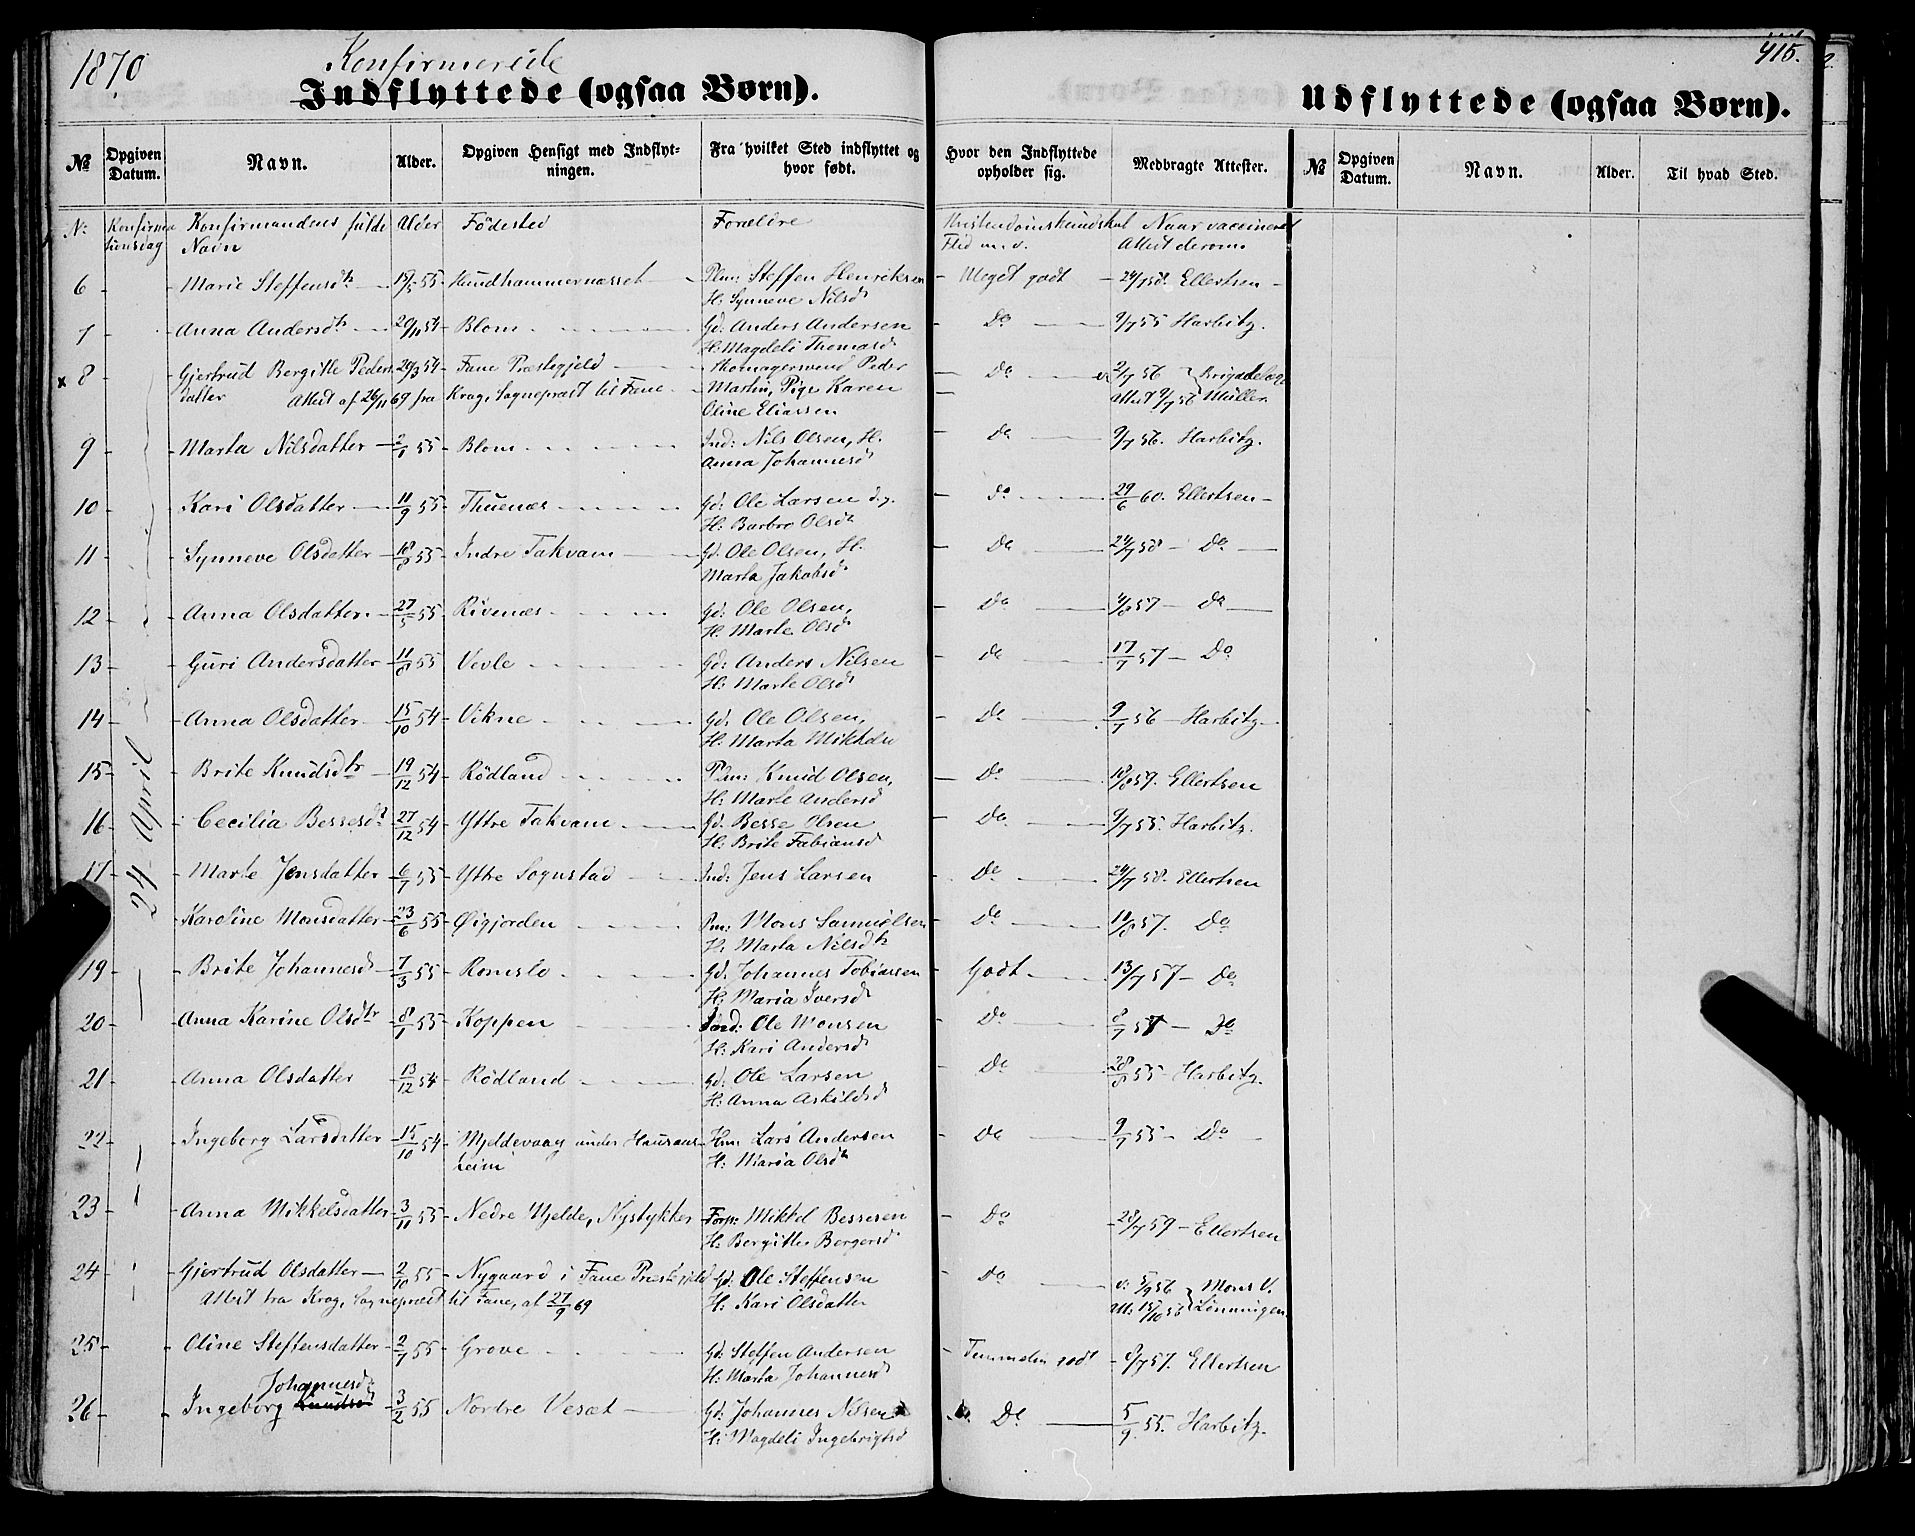 1870
Konfirmerede
Indflyttede (ogsaa Børn).
415.
Udflyttede (ogsaa Børn).
№ Opgiven Datum. Navn. Alder. Opgiven Hensigt med Indflytningen. Fra hvilket Sted indflyttet og hvor født. Hvor den Indflyttede opholder sig. Medbragte Attester. № Opgiven Datum. Navn. Alder. Til hvad Sted.
N: Konfirma Konfirmandens fulde Alder Födested Forældre Kristendomskundskab Naar vaccineret
tionsdag Navn Flid m. v. Attest derom.
24 April
6 Marie Steffensdtr 55 Hundhammernæsset Plm: Steffen Henriksen Meget godt 24/7 58. Ellertsen
H: Synneve Nilsd
7 Anna Andersdtr 20/11 54 Blom Gd: Anders Andersen Do 9/7 55 Harbitz.
H: Magdeli Thomasd
x 8 Gjertrud Bergitte Peders 20/3 54 Fane Præstegjeld Peder Do v. 2/7 56 Brigadelæge
datter Attest af 26/11 69 fra Krag, Sogneprest til Fane Martin, Pige Karen Attest 9/7 56 Müller
Oline Eliassen
9 Marta Nilsdatter 2/1 55 Blom Ind: Nils Olsen, H. Do 9/7 56. Harbitz.
Anna Johannesd
10 Kari Olsdatter 11/9 55 Thuenæs Gd: Ole Larsen d.y. Do 29/6 60. Ellertsen
H: Barbro Olsdtr
11 Synneve Olsdatter 18/8 55 Indre Takvam Gd. Ole Olsen, H. Do 24/7 58 Do
Marta Jakobsd
12 Anna Olsdatter 27/5 55 Rivenæs Gd: Ole Olsen, Do 4/8 57 Do
H. Marte Olsd
13 Guri Andersdatter 11/8 55 Vevle Gd: Anders Nilsen Do 17/7 57 Do
H: Marte Olsd
14 Anna Olsdatter 15/10 54 Vikne Gd. Ole Olsen, Do 9/7 56 Harbitz
H: Marta Mikkelsd
15 Brite Knudsdtr 19/12 54 Rödland Plm: Knud Olsen, Do 18/8 59. Ellertsen
H: Marte Andersd
16 Cecilia Bessesdt 27/12 54 Yttre Takvam Gd. Besse Olsen Do 9/7 55. Harbitz.
H: Brite Fabiansd
17 Marte Jensdatter 6/7 55 Yttre Sognstad Ind: Jens Larsen Do 24/7 58. Ellertsen
Karoline Monsdatter 23/6 55 Øigjorden Pm: Mons Samuelsen Do 57. Do
H: Marta Nilsdtr
19 Brite Johannesd 7/3 55 Romslo Gd. Johannes Tobiassen Godt 13/7 57 Do
H: Maria Iversd
20 Anna Karine Olsdtr 8/1 55 Koppen Ind: Ole Monsen Do 8/7 57 Do
H: Kari Andersd
21 Anna Olsdatter 13/12 54 Rödland Gd: Ole Larsen Do 28/8 55 Harbitz.
H: Anna Askildsd
22 Ingeborg Larsdatter 15/10 54 Mjeldevaag under Hausans Hm: Lars Andersen Do 9/7 55 Do
heim H: Maria Olsdtr
23 Anna Mikkelsdatter 3/11 55 Nedre Mjelde, Nystykket Form: Mikkel Bessesen Do 28/7 59 Ellertsen
H: Bergitte Bergersd
24 Gjertrud Olsdatter 2/10 55 Nygaard i Fane Prestegjeld Gd: Ole Steffensen Do v. 5/9 56 Mons V.
Attest fra Krag, Sogneprest til Fane, af 27/9 69 H. Kari Olsdatter Att: 15/10 56 Lönningen
25 Oline Steffensdatter 2/7 55 Grove Gd: Steffen Andersen Temmelig godt 8/7 57. Ellertsen
H: Marta Johannesd
Johannesd
26 Ingeborg Knudsd 3/2 55 Nordre Veset Gd: Johannes Nilsen Do 5/9 55. Harbitz.
H: Magdeli Ingebrigtsd